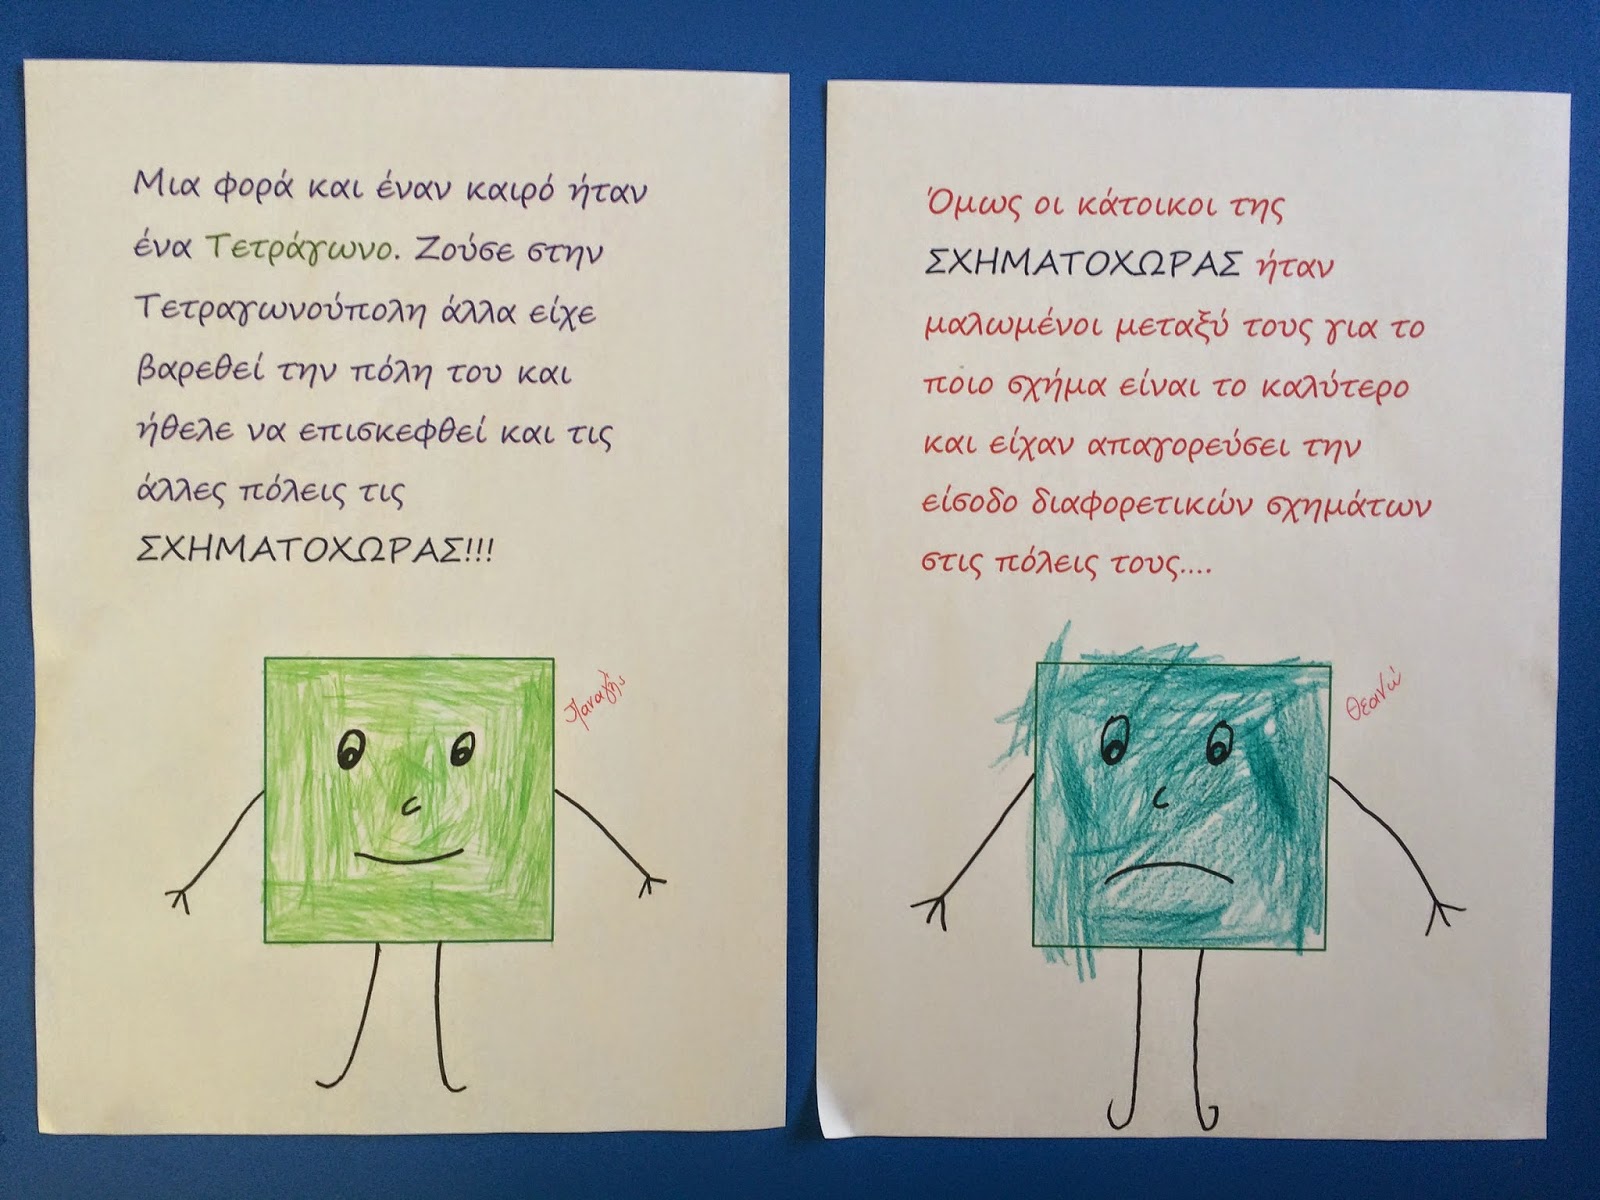 Μια φορά και έναν καιρό ήταν
ένα Τετράγωνο. Ζούσε στην
Τετραγωνούπολη άλλα είχε
βαρεθεί την πόλη του και
ήθελε να επισκεφθεί και τις
άλλες πόλεις τις
ΣΧΗΜΑΤΟΧΩΡΑΣ!!!
Παναγής
Όμως οι κάτοικοι της
ΣΧΗΜΑΤΟΧΩΡΑΣ ήταν
μαλωμένοι μεταξύ τους για το
ποιο σχήμα είναι το καλύτερο
και είχαν απαγορεύσει την
είσοδο διαφορετικών σχημάτων
στις πόλεις τους....
Θεανώ